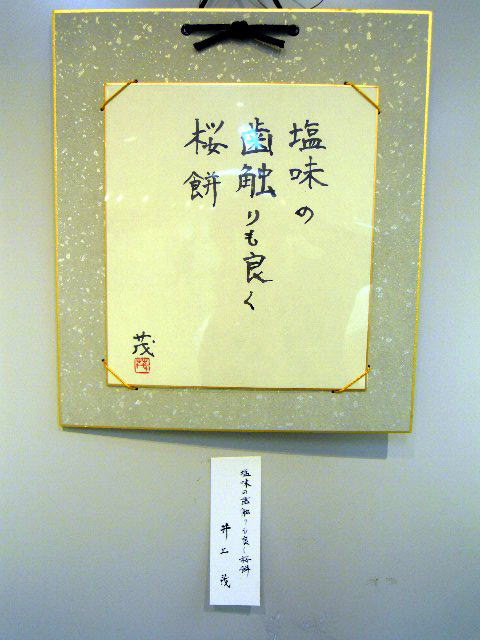 塩味の
歯触りも良く
桜餅
茂
茂
塩味の歯触りも良く桜餅
井上 茂